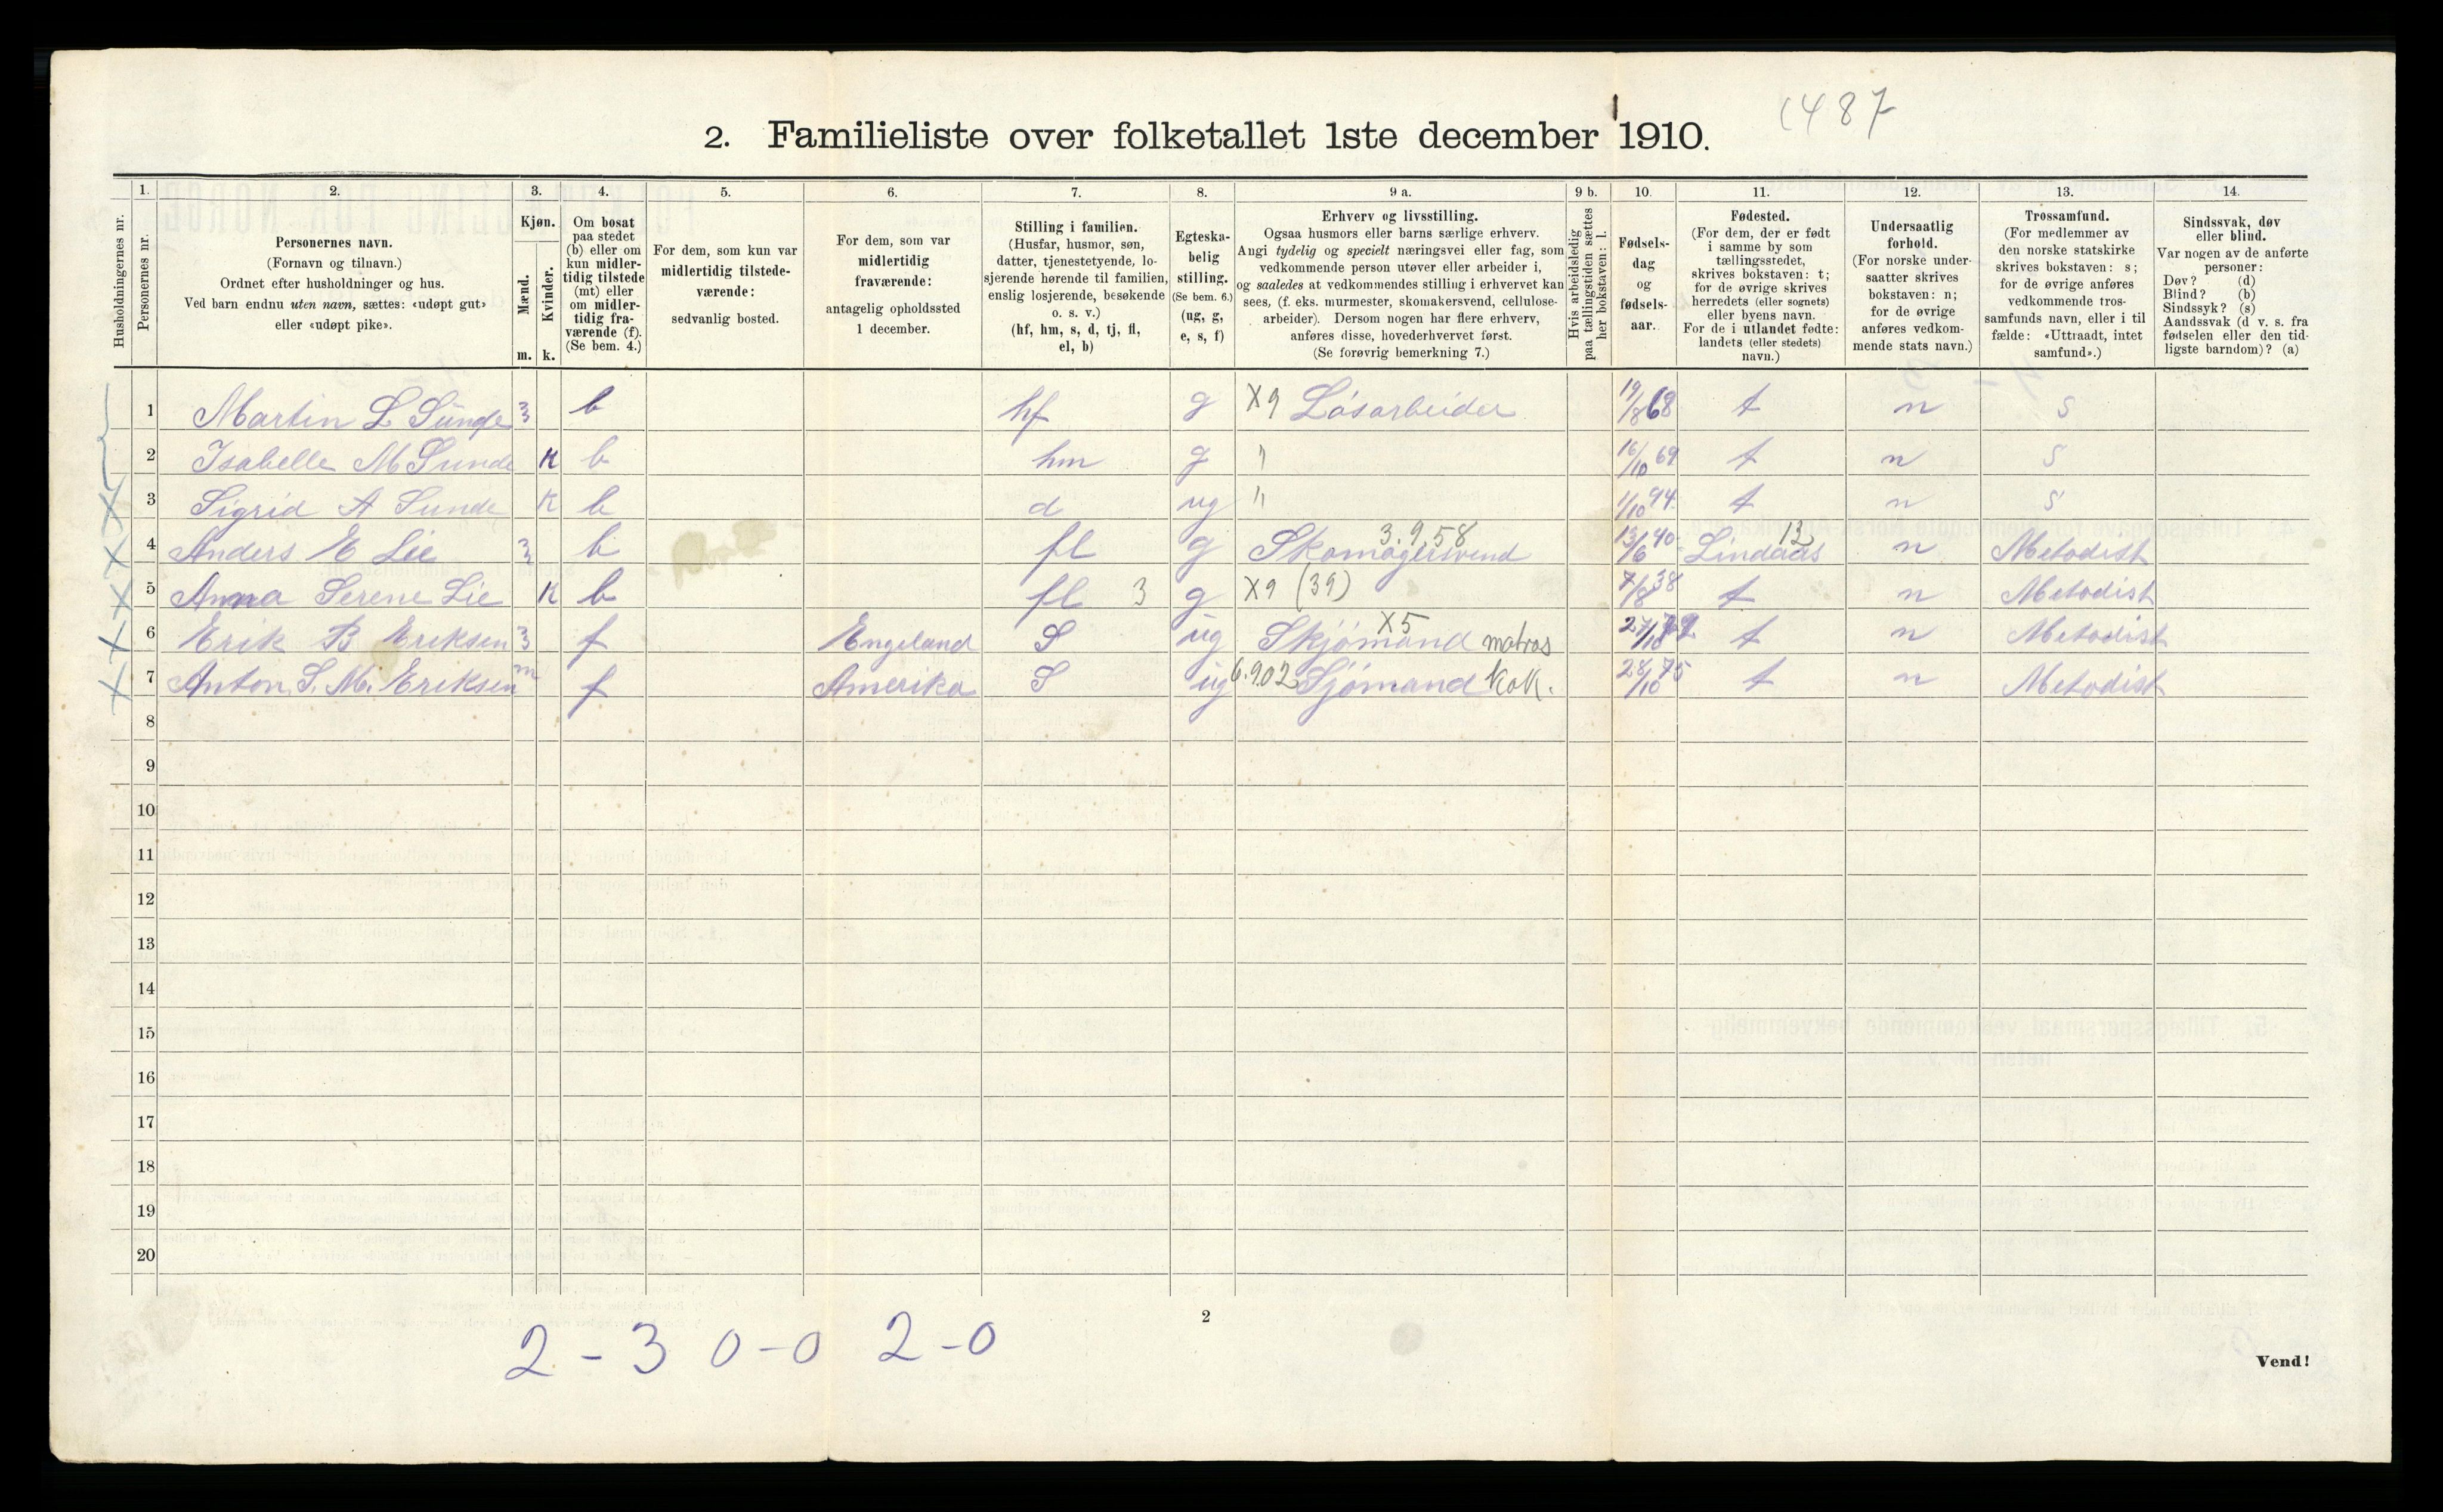 1487
2. Familieliste over folketallet 1ste december 1910.
Husholdningernes nr.
1. Personernes nr.
2. Personernes navn. (Fornavn og tilnavn.) Ordnet efter husholdninger og hus. Ved barn endnu uten navn, sættes: «udøpt gut» eller «udøpt pike».
3. Kjøn. Mænd. m. Kvinder. k.
4. Om bosat paa stedet (b) eller om kun midlertidig tilstede (mt) eller om midlertidig fraværende (f). (Se bem. 4.)
5. For dem, som kun var midlertidig tilstedeværende: sedvanlig bosted.
6. For dem, som var midlertidig fraværende: antagelig opholdssted 1 december.
7. Stilling i familien. (Husfar, husmor, søn, datter, tjenestetyende, losjerende hørende til familien, enslig losjerende, besøkende o. s. v.) (hf, hm, s, d, tj, fl, el, b)
8. Egteskabelig stilling. (Se bem. 6.) (ug, g, e, s, f)
9 a. Erhverv og livsstilling. Ogsaa husmors eller barns særlige erhverv. Angi tydelig og specielt næringsvei eller fag, som vedkommende person utøver eller arbeider i, og saaledes at vedkommendes stilling i erhvervet kan sees, (f. eks. murmester, skomakersvend, cellulosearbeider). Dersom nogen har flere erhverv, anføres disse, hovederhvervet først. (Se forøvrig bemerkning 7.)
9 b. Hvis arbeidsledig paa tællingstiden sættes her bokstaven: l.
10. Fødselsdag og fødselsaar.
11. Fødested. (For dem, der er født i samme by som tællingsstedet, skrives bokstaven: t; for de øvrige skrives herredets (eller sognets) eller byens navn. For de i utlandet fødte: landets (eller stedets) navn.)
12. Undersaatlig forhold. (For norske undersaatter skrives bokstaven: n; for de øvrige anføres vedkommende stats navn.)
13. Trossamfund. (For medlemmer av den norske statskirke skrives bokstaven: s; for de øvrige anføres vedkommende trossamfunds navn, eller i tilfælde: «Uttraadt, intet samfund».)
14. Sindssvak, døv eller blind. Var nogen av de anførte personer: Døv? (d) Blind? (b) Sindssyk? (s) Aandssvak (d v. s. fra fødselen eller den tidligste barndom)? (a)
1 Martin L Sunde 3 b hf g X9 Løsarbeider 19/8 68 t n S
2 Isabelle M Sunde K b hm g " 16/10 69 t n S
3 Sigrid A Sunde K b d ug " 1/10 94 t n S
4 Anders E Lie 3 b fl g Skomagersvend 3.9.58 13/6 40 Lindaas 12 n Metodist
5 Anna Serene Lie K b fl 3 g X9 (39) 7/8 38 t n Metodist
6 Erik B Eriksen 3 f Engeland S ug Skjømand X5 matros 27/10 t n Metodist
7 Anton S. M. Eriksen m f Amerika S ug 6.902 Sjømand kok. 28/10 75 t n Metodist
8
9
10
11
12
13
14
15
16
17
18
19
20
2
2 - 3 0 - 0 2 - 0
Vend!